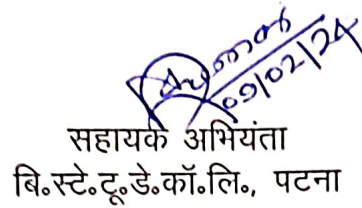 09/02/24
सहायक अभियंता
बि॰स्टे॰टू॰डे॰कॉ॰लि॰, पटना